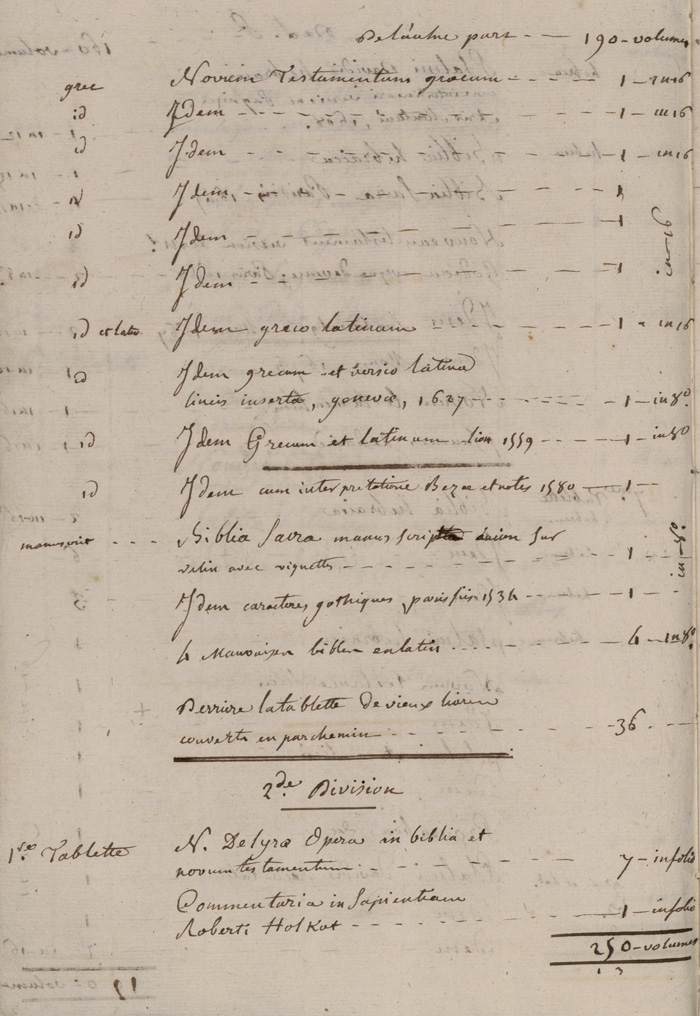 De l'autre part - - - 190 - volumes
grec Novum Testamentum grœcum - - - 1 - in 16
id Idem - - - 1 - in 16
id Idem - - - 1 - in 16
id Idem - - - 1
id Idem - - - 1
id Idem - - - 1
in-16
id et latin Idem grœco latinum 1 - in 16
id Idem grecum et versio latina
lineis inserta, genevæ, 1627 - - - 1 - in 8º.
id Idem Grecum et latinum lion 1559 - - 1 - in 8º
id Idem cum interpretatione Bezæ et notes 1580 - 1 -
manuscrit - - - Biblia Sacra manus scripta
velin avec vignettes - - - 1
in-8º.
Idem caracteres gothiques, parisiis 1534 - - - 1 - -
4 Mauvaises bibles en latin - - - 4 - in 8º
Derriere la tablette de vieux livres
couverts en parchemin - - - 36 - -
2de Division
1re Tablette N. De lyra Opera in biblia et
novum testamentum - - - 7 - in folio
Commentaria in Sapientiam
Roberti Holkot - - - 1 - in folio
250 - volumes